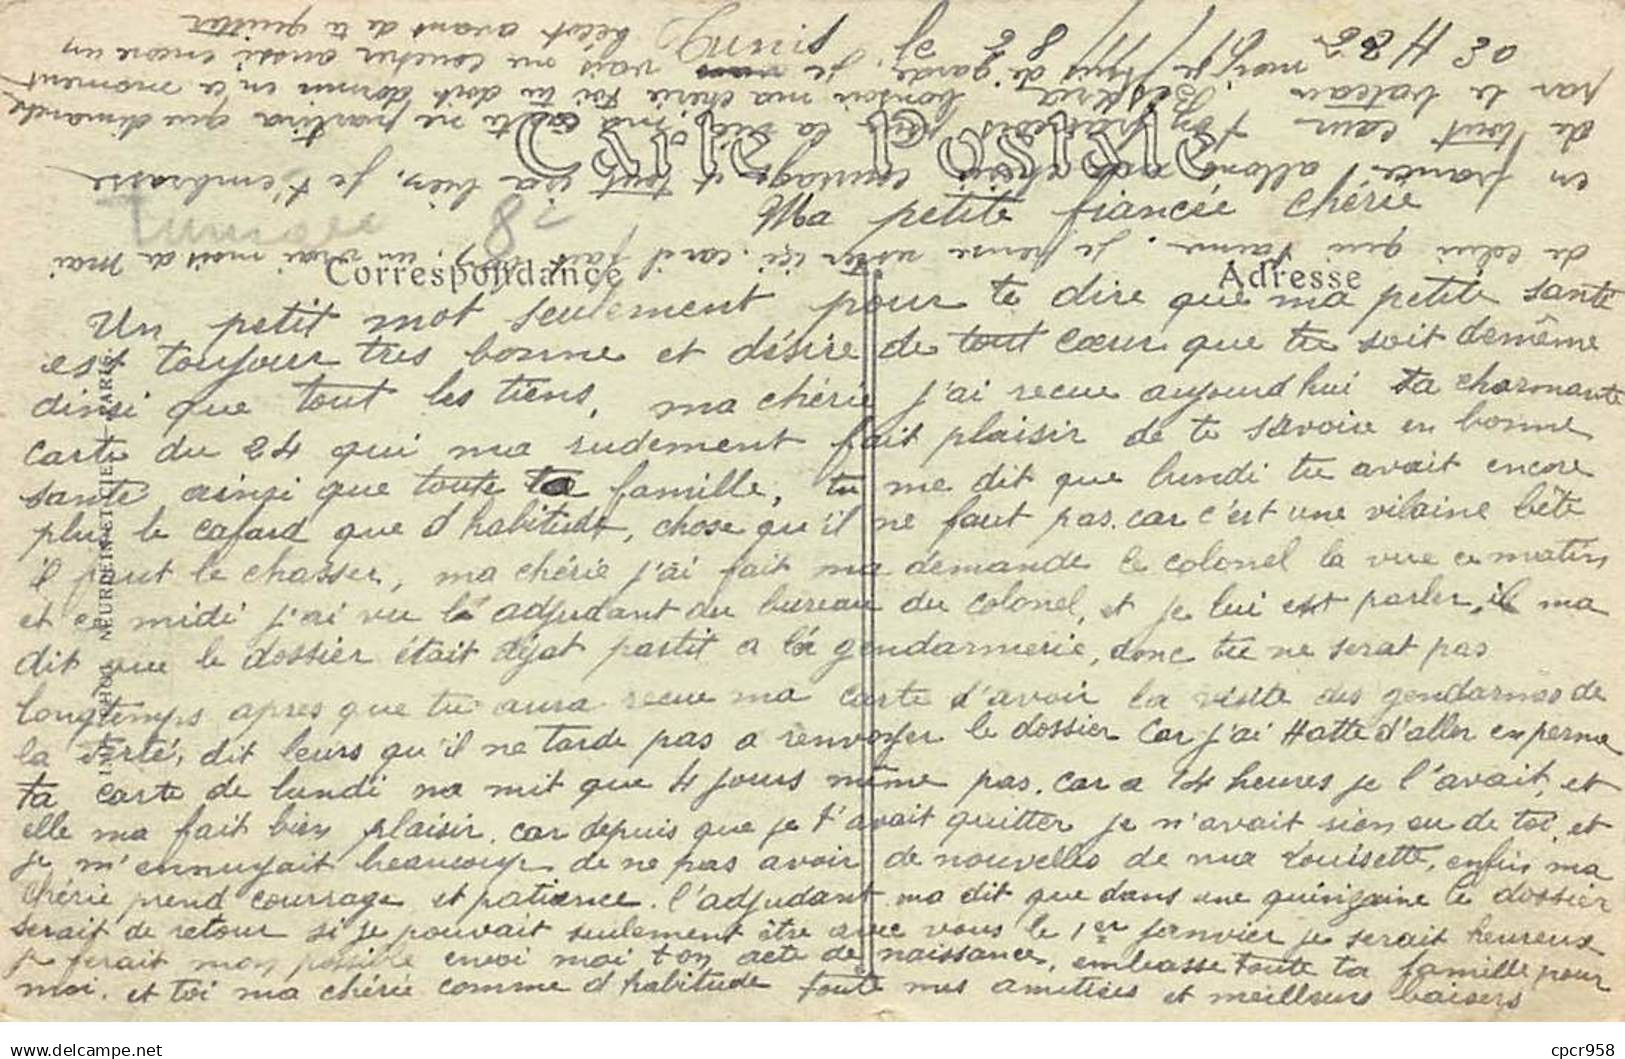 Carte Postale
Correspondance
Adresse
Tunis
Ma petite fiancée chérie
Un petit mot seulement pour te dire que ma petite santé
est toujour tres bonne et désire de tout cœur que tu soit demême
ainsi que tout les tiens, ma chérie j'ai recue aujourd'hui ta charmante
carte du 24 qui ma rudement fait plaisir de te savoire en bonne
santé ainsi que toute ta famille, tu me dit que lundi tu avait encore
plus le cafard que d'habitude, chose qu'il ne faut pas. car c'est une vilaine bête
il faut le chasser, ma chérie j'ai fait ma demande le colonel la vue ce matin
et ce midi j'ai vu le adjudant au bureau du colonel, et je lui est parler, il ma
dit que le dossier était dejat partit a la gendarmerie, donc tu ne serat pas
longtemps apres que tu aura recue ma carte d'avoir la visite des gendarmes de
la Ferté, dit leurs qu'il ne tarde pas a renvoyer le dossier car j'ai Hatte d'aller en perme
ta carte de lundi na mit que 4 jours même pas. car a 14 heures je l'avait, et
elle ma fait bien plaisir. car depuis que je t'avait quitter je n'avait rien eu de toi, et
je m'ennuyait beaucoup de ne pas avoir de nouvelles de ma Louisette, enfin ma
chérie prend courrage et patience. l'adjudant ma dit que dans une quinzaine le dossier
serait de retour si je pouvait seulement être avec vous le 1er janvier je serait heureux
je ferait mon possible envoi moi ton acte de naissance, embrasse toute ta famille pour
moi. et toi ma chérie comme d'habitude toute mes amitiées et meilleurs baisers
de celui qui t'aime. je pense rester ici. car il fait bon, un vrai mois de mai
en france, allons ma chérie courrage et tout ira bien, je t'embrasse
de tout cœur ton françois pour la vie, ma carte ne partira que dimanche
par le bateau Biskra, bonsoir ma chérie toi tu doit dormir en ce moment
moi je suis de garde, je vais me coucher aussi encore un
bécot avant de te quitter
IMP. PHOT. NEURDEIN ET CIE - PARIS
cpcr958